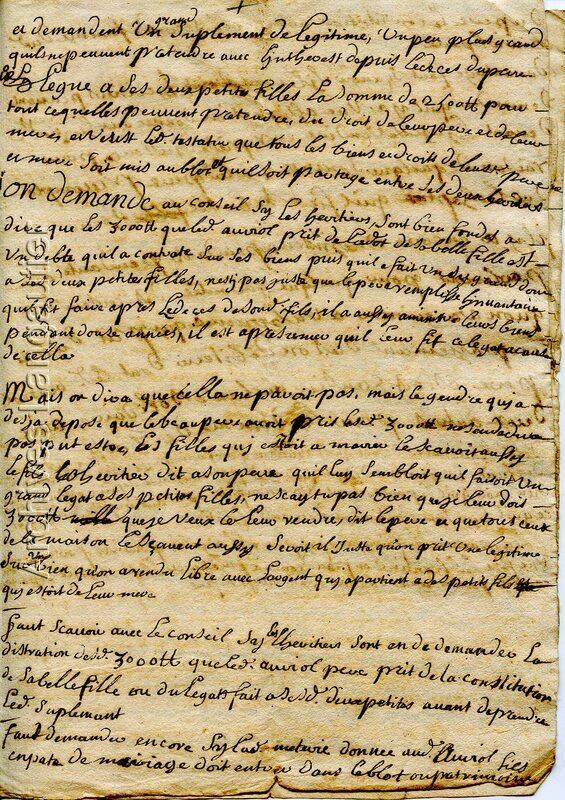 et demandent Un grand Suplement de legitime, Un peu plus grand
quils ne peuvent pretendre avec depuis le deces du pere
Legue a ses deux petites filles La somme de 2500tt pour
tout ce quelles peuvent pretendre, du droit de leur pere et de leur
mere, et Led. testateur que tous les biens et droits de leur pere
et mere soit mis au blot et quil soit partage entre ses deux heritiers
On demande au conseil Sy les heritiers, sont bien fondes a
dire que les 3000tt que led. auriol prit de la dot de Sa belle fille est
Un debte quil a contraté sur ses biens puis quil a fait Un don
a ses deux petites filles, nest pas juste que le pere remplisse
quil fit faire apres Le deces de son d. fils, il a aussy aministré leurs biens
pendant douse années, il est a presumer quil leur fit ce legat a cause
de cella
Mais on dira que cella ne paroit pas, mais le gendre quj a
desja deposé que le beaupere avoit pris lesd. 3000tt ne
pas put estre, les filles quj estoit a marier le scavoit aussy
le fils heritier dit a son pere quil luy sembloit quil faisoit Un
grand legat a ses petites filles, ne scays tu pas bien que je leur dois
3000tt que je veux le leur rendre, dit le pere et que tous ceux
de la maison le scavent aussy seroit il juste quon prit Une legitime
sur Un bien quon a rendu libre avec Largent quj apartient a des petites filles
quj estoit de leur mere
faut scavoir avec le conseil Sy les heritiers sont en de demander La
distration desd. 3000tt que led. auriol pere prit de la constitution
de Sa belle fille ou du legat fait a sesd. deux petites avant de prendre
Led. suplemant
faut demander encore Sy lad. meterie donnée aud. Auriol fils
en pate de mariage doit entrer dans le blot ou patrimoine
Archives-Harold-Skiller